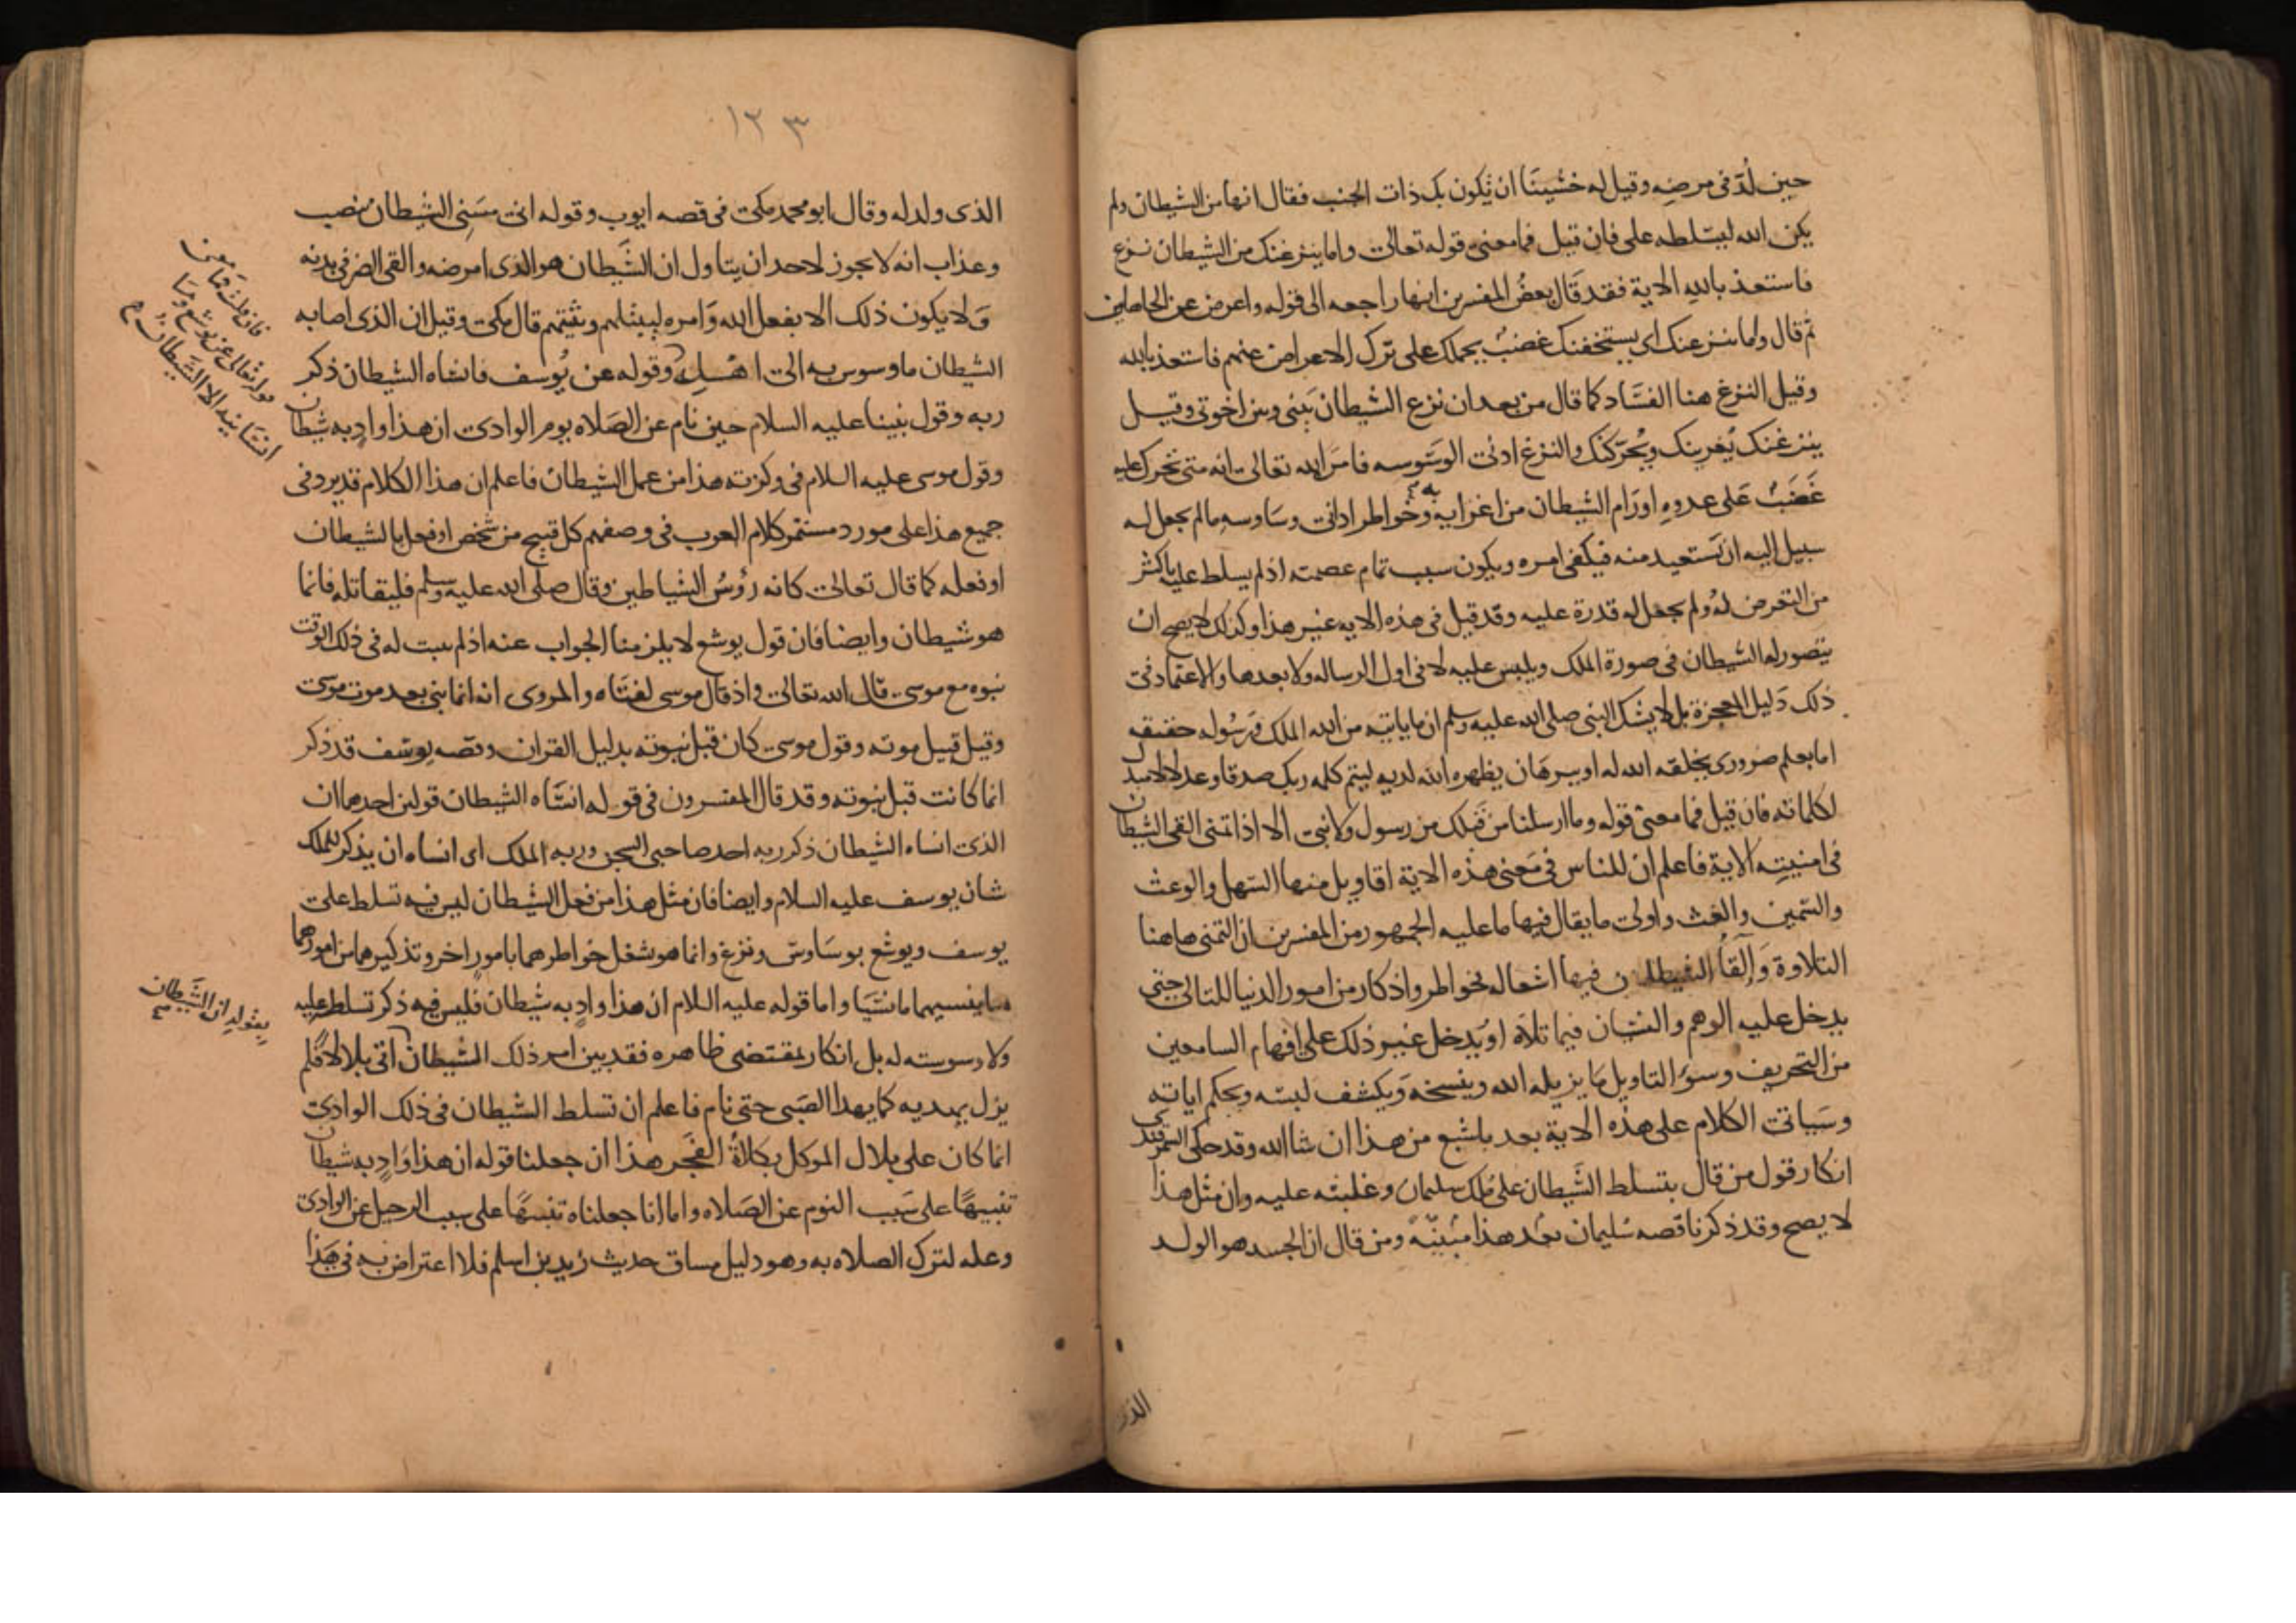 حين لُدّ في مرضه وقيل له خشينا ان يكون بك ذات الجنب فقال انها من الشيطان ولم
يكن الله ليسلطه على فان قيل فما معنى قوله تعالى واما ينزغنك من الشيطان نزغ
فاستعذ بالله الاية فقد قال بعض المفسرين انها راجعه الى قوله واعرض عن الجاهلين
ثم قال واما ينزغنك اى يستخفنك غضب يحملك على ترك الاعراض عنهم فاستعذ بالله
وقيل النزغ هنا الفساد كما قال من بعد ان نزغ الشيطان بينى وبين اخوتى وقيل
ينزغنك يُغرينك ويُحرّكنك والنزغ ادنى الوسوسه فامر الله تعالى انه متى تحرك عليه
غَضَبٌ على عدوه او رام الشيطان من اغرايه به وخواطر ادانى وساوسه مالم يجعل له
سبيل اليه ان يستعيد منه فيكفى امره ويكون سبب تمام عصمته اذ لم يسلط عليه باكثر
من التعرض له ولم يجعل له قدرة عليه وقد قيل فى هذه الايه غير هذا وكذلك لا يصح ان
يتصور له الشيطان فى صورة الملك ويلبس عليه لا فى اول الرساله ولا بعدها والاعتماد فى
ذلك دليل المعجزة بل لا يشك النبى صلى الله عليه وسلم ان ما ياتيه من الله الملك ورسوله حقيقه
اما بعلم ضرورى يخلقه الله له او ببرهان يظهره الله لديه ليتم كلمه ربك صدقا وعدلا لا مبدل
لكلماته فان قيل فما معنى قوله وما ارسلنا من قبلك من رسول ولا نبى الا اذا تمنى القى الشيطان
فى امنيته الاية فاعلم ان للناس فى معنى هذه الاية اقاويل منها السهل والوعث
والسمين والغث واولى ما يقال فيها ما عليه الجمهور من المفسرين ان التمنى هاهنا
التلاوة وَإلقأ الشيطان فيها اشغاله بخواطر واذكار من امور الدنيا للتالى حتى
يدخل عليه الوهم والنسيان فيما تلاه او يدخل غير ذلك على افهام السامعين
من التحريف وسؤ التاويل ما يزيله الله وينسخه ويكشف لبسه ويحكم اياته
وسياتى الكلام على هذه الاية بعد باشبع من هذا ان شا الله وقد حكى السمرقندى
انكار قول من قال بتسلط الشيطان على ملك سليمان وغلبته عليه وان مثل هذا
لا يصح وقد ذكرنا قصه سليمان بعد هذا مبينة ومن قال ان الجسد هو الولد
الذى
١٢٣
الذى ولد له وقال ابو محمد مكى فى قصه ايوب وقوله انى مسنى الشيطان بنصب
وعذاب انه لا يجوز لاحد ان يتاول ان الشيطان هو الذى امرضه والقى الضر فى بدنه
ولا يكون ذلك الا بفعل الله وامره ليبتليهم ويثيبهم قال مكى وقيل ان الذى اصابه
الشيطان ما وسوس به الى اهله وقوله عن يوسف فانساه الشيطان ذكر
ربه وقول نبينا عليه السلام حين نام عن الصلاه يوم الوادى ان هذا وادٍ به شيطان
وقول موسى عليه السلام فى وكزته هذا من عمل الشيطان فاعلم ان هذا الكلام قد يرد فى
جميع هذا على مورد مستمر كلام العرب فى وصفهم كل قبيح من شخص او فعل بالشيطان
او فعله كما قال تعالى كانه رؤس الشياطين وقال صلى الله عليه وسلم فليقاتله فانما
هو شيطان وايضا فان قول يوشع لا يلزمنا الجواب عنه اذ لم يثبت له فى ذلك الوقت
نبوه مع موسى قال الله تعالى واذ قال موسى لفتاه والمروى انه انما نبى بعد موت موسى
وقيل قبيل موته وقول موسى كان قبل نبوته بدليل القران وقصه يوسف قد ذكر
انما كانت قبل نبوته وقد قال المفسرون فى قوله انساه الشيطان قولين احدهما ان
الذى انساه الشيطان ذكر ربه احد صاحبى السجن وربه الملك اى انساه ان يذكر للملك
شان يوسف عليه السلام وايضا فان مثل هذا من فعل الشيطان ليس فيه تسلط على
يوسف ويوشع بوساوس ونزغ وانما هو شغل خواطرهما بامور اخر وتذكيرهما من امورهما
ما ينسيهما ما نسيا واما قوله عليه السلام ان هذا وادٍ به شيطان فليس فيه ذكر تسلط عليه
ولا وسوسته له بل ان كان بمقتضى ظاهره فقد بين امر ذلك الشيطان اتى بلالا فلم
يزل يهديه كما يهدا الصبى حتى نام فاعلم ان تسلط الشيطان فى ذلك الوادى
انما كان على بلال الموكل بكلاة الفجر هذا ان جعلنا قوله ان هذا وادٍ به شيطان
تنبيهًا على سبب النوم عن الصلاه واما ان جعلناه تنبيهًا على سبب الرحيل عن الوادى
وعله لترك الصلاه به وهو دليل مساق حديث زيد بن اسلم فلا اعتراض به فى هذا
فان قلت فما معنى
قوله تعالى عن يوشع وما
انسانيه الا الشيطان
بقوله ان الشيطان